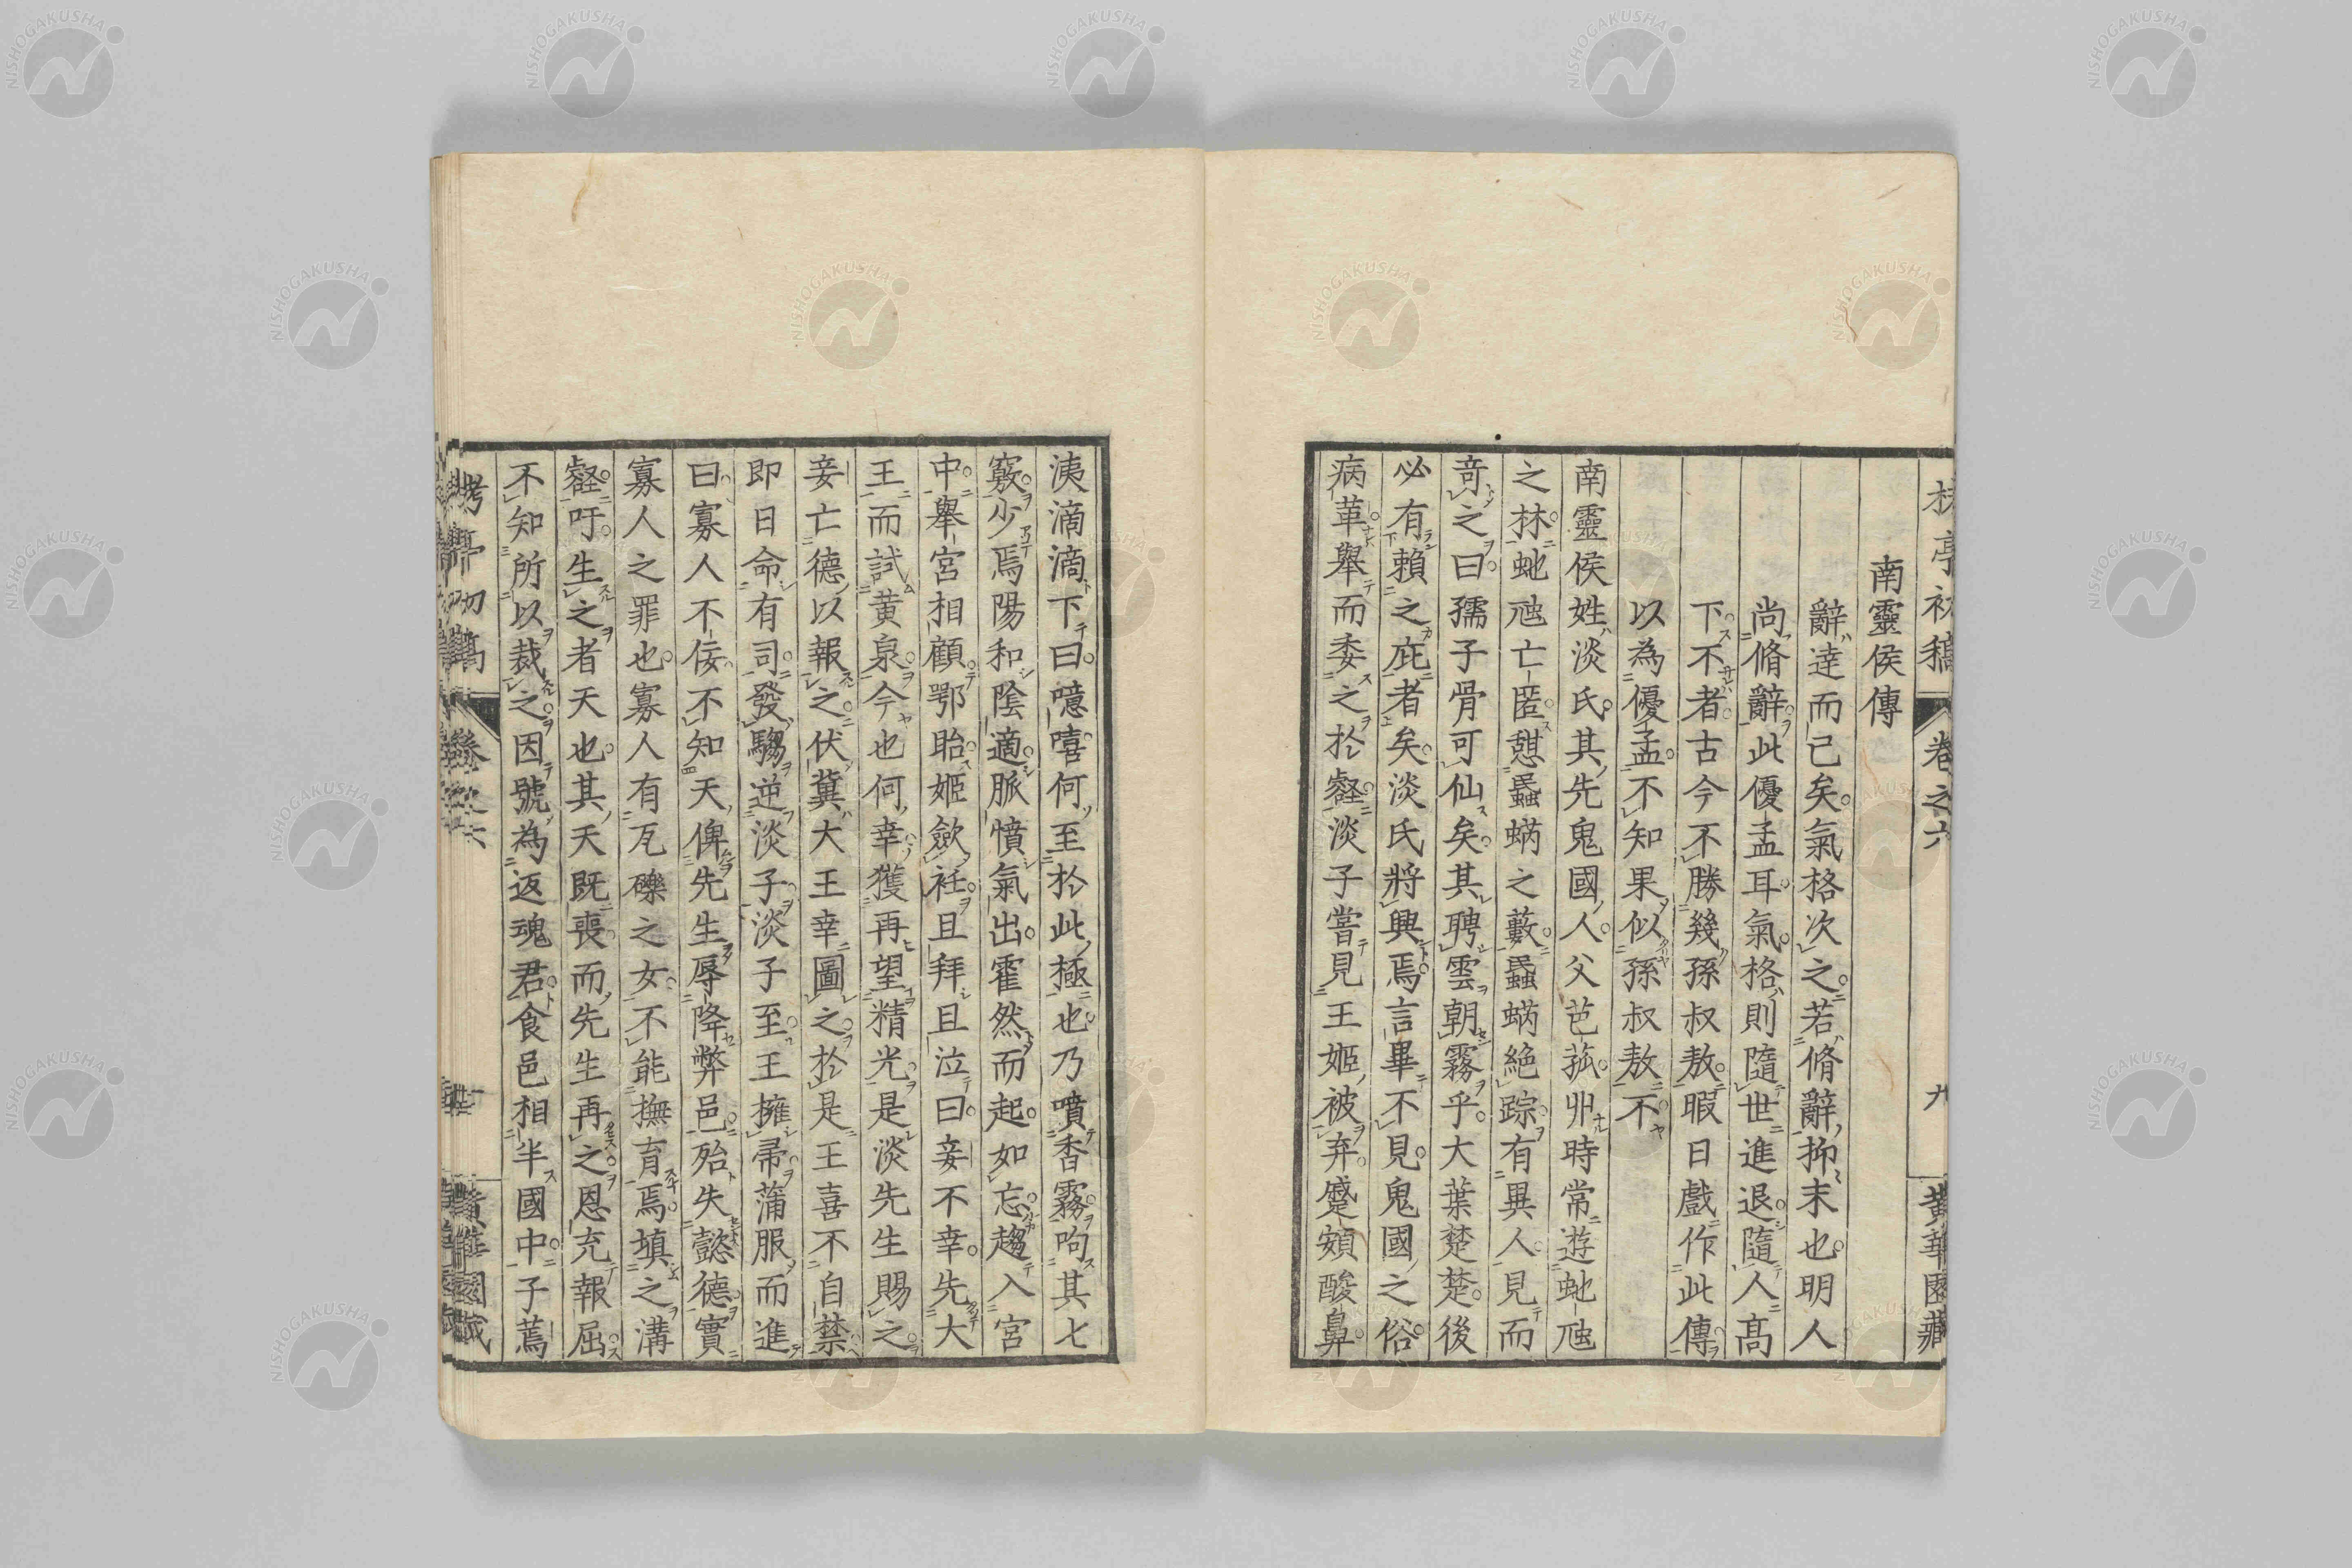 南靈侯傳
辭達而已矣氣格次之若脩辭抑末也明人
尚脩辭此優孟耳氣格則隨世進退隨人髙
下不者古今不勝幾孫叔敖暇日戲作此傳
以為優孟不知果似孫叔敖不
南靈侯姓淡氏其先鬼國人父芭菰丱時常遊虵虺
之林虵虺亡匿憇蟁蜹之藪蟁蜹絕踪有異人見而
竒之曰孺子骨可仙矣其聘雲朝霧乎大葉楚楚後
必有賴之庇者矣淡氏將興焉言畢不見鬼國之俗
病革舉而委之於壑淡子嘗見王姬被弃蹙頞酸鼻
洟滴滴下曰噫嘻何至於此極也乃噴香霧呴其七
竅少焉陽和陰適脈憤氣出霍然而起如忘趨入宮
中舉宮相顧鄂眙姬歛衽且拜且泣曰妾不幸先大
王而試黄泉今也何幸獲再望精光是淡先生賜之
妾亡德以報之伏冀大王幸圖之於是王喜不自禁
即日命有司發騶逆淡子淡子至王擁帚蒲服而進
曰寡人不佞不知天俾先生辱降弊邑殆失懿德實
寡人之罪也寡人有瓦礫之女不能撫育焉填之溝
壑吁生之者天也其天既喪而先生再之恩充報屈
不知所以裁之因號為返魂君食邑相半國中子蔫
卷之六
九
黄華園藏